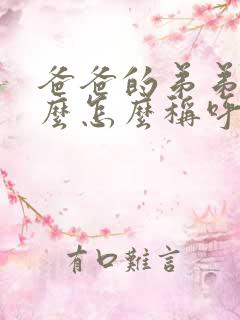 爸爸的弟弟
麼怎麼稱呼
有口難言